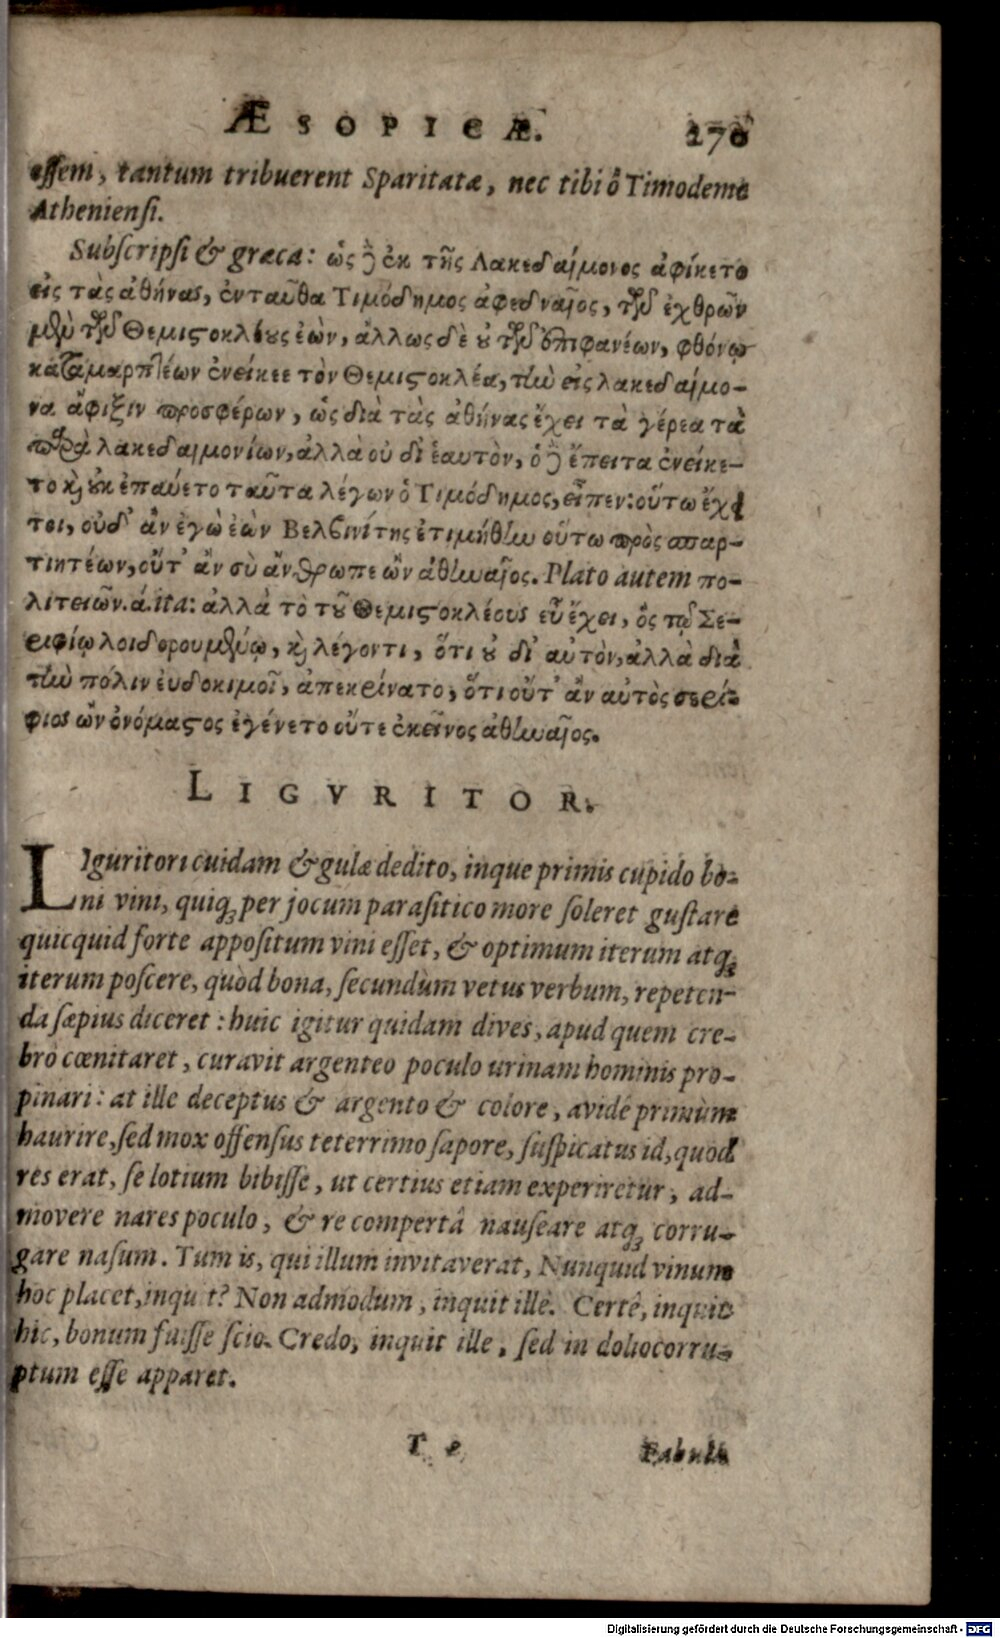 ÆSOPICÆ. 270
essem, tantum tribuerent Sparitatæ, nec tibi ô Timodeme
Atheniensi.
Subscripsi & græca: ὡς ἢ ἐκ τῆς Λακεδαίμονος ἀφίκετο
εἰς τὰς ἀθήνας, ἐνταῦθα Τιμόδημος ἀφεδναῖος, τῶν ἐχθρῶν
μὲν τῶν Θεμιστοκλέους ἐὼν, ἄλλως δὲ ȣ τῶν ἐπιφανέων, φθόνῳ
καταμαργέων ἐνείκεε τὸν Θεμιστοκλέα, τὴν εἰς λακεδαίμο-
να ἄφιξιν προσφέρων, ὡς διὰ τὰς ἀθήνας ἔχει τὰ γέρεα τὰ
παρὰ λακεδαιμονίων, ἀλλὰ οὐ δἰ ἑαυτὸν, ὁ ἢ ἔπειτα ἐνείκε-
το κỳ ȣκ ἐπαύετο ταῦτα λέγων ὁ Τιμόδημος, εἶπεν: οὕτω ἔχει
τοι, οὐδ' ἂν ἐγὼ ἐὼν Βελβινίτης ἐτιμήθην οὕτω πρὸς σπαρ-
τιητέων, οὔτ' ἂν σὺ ἄνθρωπε ὢν ἀθηναῖος. Plato autem πο-
λιτειῶν. ά. ita: ἀλλὰ τὸ τοῦ Θεμιστοκλέους εὖ ἔχει, ὅς τῷ Σε-
ριφίῳ λοιδορουμένῳ, κỳ λέγοντι, ὅτι ȣ δἰ αὐτὸν, ἀλλὰ διὰ
τὴν πόλιν ἐυδοκιμοῖ, ἀπεκρίνατο, ὅτι οὔτ' ἂν αὐτὸς σερί-
φιος ὢν ὀνόμαστος ἐγένετο οὔτε ἐκεῖνος ἀθηναῖος.
LIGVRITOR.
LIguritori cuidam & gulæ dedito, inque primis cupido bo-
ni vini, quiq; per jocum parasitico more soleret gustare
quicquid forte appositum vini esset, & optimum iterum atq;
iterum poscere, quòd bona, secundùm vetus verbum, repeten-
da sæpius diceret: huic igitur quidam dives, apud quem cre-
brò cœnitaret, curavit argenteo poculo urinam hominis pro-
pinari: at ille deceptus & argento & colore, avidè primùm
haurire, sed mox offensus teterrimo sapore, suspicatus id, quod
res erat, se lotium bibisse, ut certius etiam experiretur, ad-
movere nares poculo, & re compertâ nauseare atq; corru-
gare nasum. Tum is, qui illum invitaverat, Nunquid vinum
hoc placet, inqu t? Non admodum, inquit ille. Certè, inquit
hic, bonum fuisse scio. Credo, inquit ille, sed in dolio corru-
ptum esse apparet.
T e Fabula
Digitalisierung gefördert durch die Deutsche Forschungsgemeinschaft - DFG